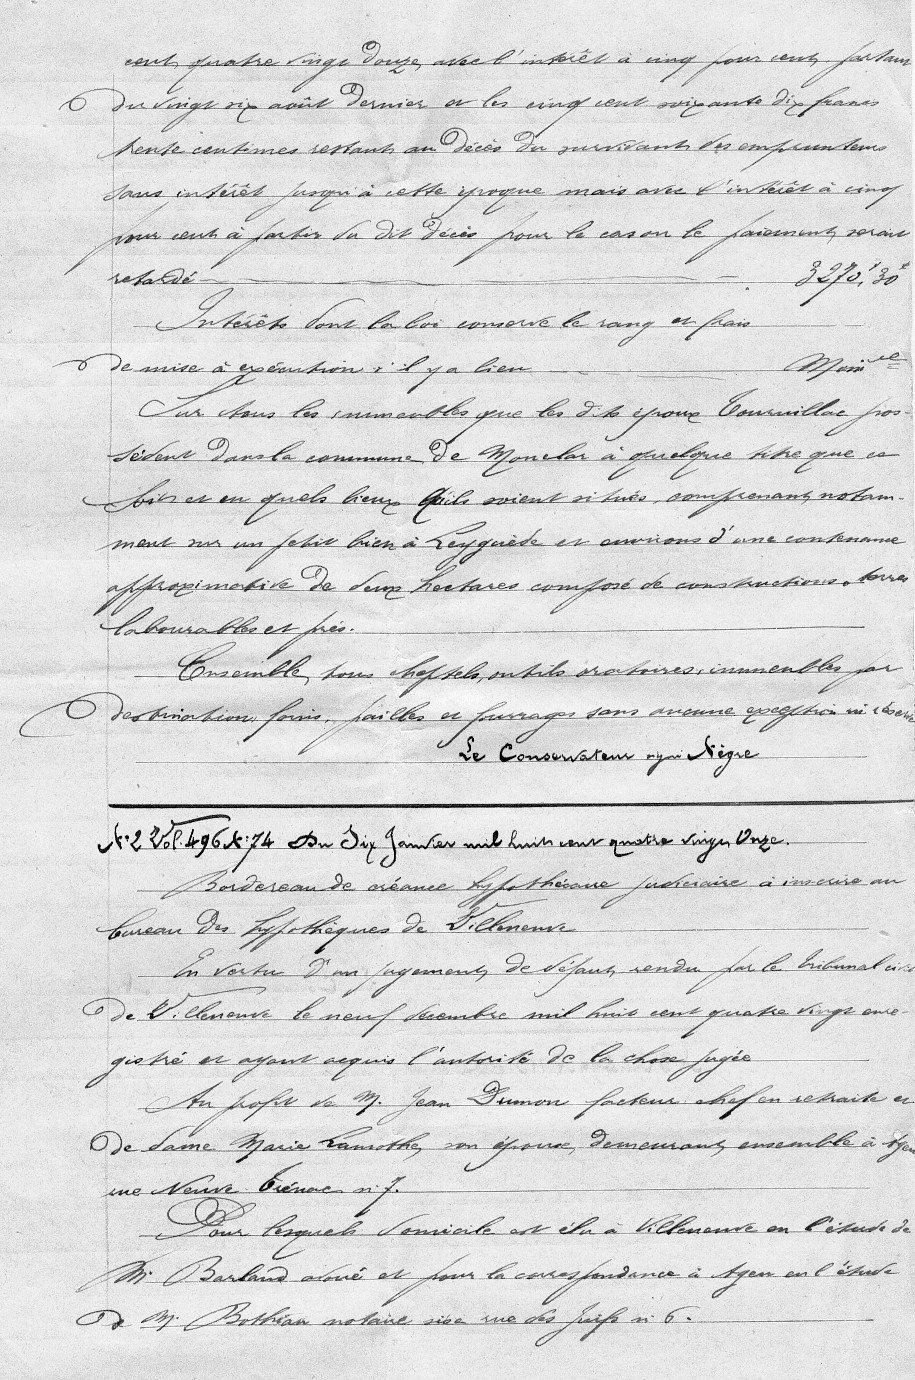 cent quatre vingt douze, avec l'intérêt à cinq pour cent partant
du vingt six août dernier et les cinq cent soixante dix francs
trente centimes restant au décès du survivant des emprunteurs
sans intérêt jusqu'à cette époque mais avec l'intérêt à cinq
pour cent à partir du dit décès pour le cas ou le paiement serait
retardé 3270f,30c
Intérêts dont la loi conserve le rang et frais
de mise à exécution s'il y a lieu
Sur tous les immeubles que les dits époux Tournillac pos-
sèdent dans la commune de Monclar à quelque titre que ce
soit et en quels lieux qu'ils soient situés, comprenant notam-
ment sur un petit bien à Leyguède et environs d'une contenance
approximative de deux hectares composé de constructions, terres
labourables et prés.
Ensemble, tous cheptels, outils aratoires, immeubles par
destination, foins, pailles et fourrages sans aucune exception ni réserve
Le Conservateur signé Nègre
N°2 Vol. 496 N°74 Du Six Janvier mil huit cent quatre vingt Onze.
Bordereau de créance hypothécaire judiciaire à inscrire au
bureau des hypothèques de Villeneuve
En vertu d'un jugement de défaut rendu par le tribunal civil
de Villeneuve le neuf décembre mil huit cent quatre vingt enre-
gistré et ayant acquis l'autorité de la chose jugée
Au profit de M. Jean Dumon facteur chef en retraite et
de dame Marie Lamothe, son épouse, demeurant ensemble à Agen
rue Neuve Trénac n° 7.
Pour lesquels domicile est élu à Villeneuve en l'étude de
Me Barland avoué et pour la correspondance à Agen en l'étude
de Me Bothian notaire sise rue des Juifs n° 6.